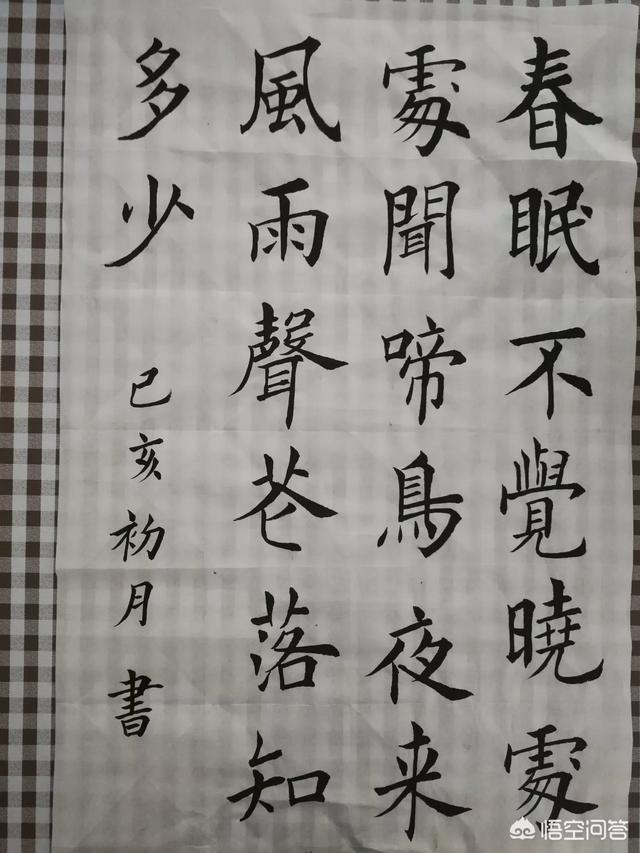 春眠不覺曉處
處聞啼鳥夜来
風雨聲花落知
多少
己亥初月書
悟空问答